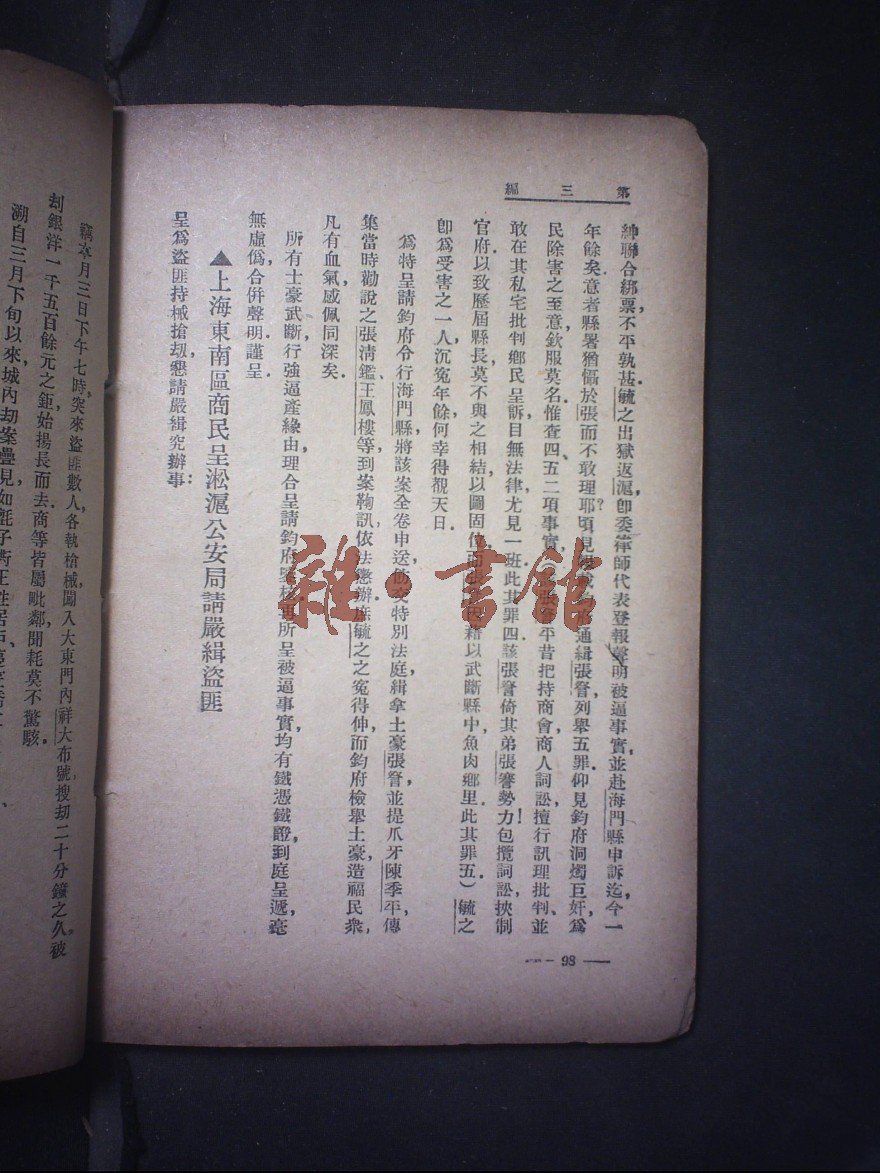 第三編
紳聯合綁票，不平孰甚．毓之出獄返滬，卽委律師代表登報聲明被逼事實，並赴海門縣申訴，迄今一
年餘矣．意者縣署猶懾於張而不敢理耶？頃見 通緝張詧，列舉五罪．仰見鈞府洞燭巨奸，爲
民除害之至意，欽服莫名．惟查四、五二項事實，（ 張詧平昔把持商會，商人詞訟，擅行訊理批判，並
敢在其私宅批判鄉民呈訴，目無法律，尤見一班，此其罪四．該張詧倚其弟張謇勢力！包攬詞訟，挾制
官府，以致歷屆縣長，莫不與之相結，以圖固位，而張 藉以武斷縣中，魚肉鄉里．此其罪五．）毓之
卽爲受害之一人，沉冤年餘，何幸得覩天日．
爲特呈請鈞府令行海門縣，將該案全卷申送，飭交特別法庭，緝拿土豪張詧，並提爪牙陳季平，傳
集當時勸說之張淸鑑、王鳳樓等，到案鞠訊，依法懲辦．庶毓之之冤得伸，而鈞府檢舉土豪，造福民衆，
凡有血氣，感佩同深矣．
所有土豪武斷，行強逼產緣由，理合呈請鈞府鑒核．再所呈被逼事實，均有鐵憑鐵證，到庭呈遞，毫
無虛僞，合併聲明．謹呈．
▲上海東南區商民呈淞滬公安局請嚴緝盜匪
呈爲盜匪持械搶刼，懇請嚴緝究辦事：
98
竊本月三日下午七時，突來盜匪數人，各執槍械，闖入大東門內祥大布號，搜刼二十分鐘之久，被
刼銀洋一千五百餘元之鉅，始揚長而去．商等皆屬毗鄰，聞耗莫不驚駭．
溯自三月下旬以來，城內刼案疊見，如
雜·書館